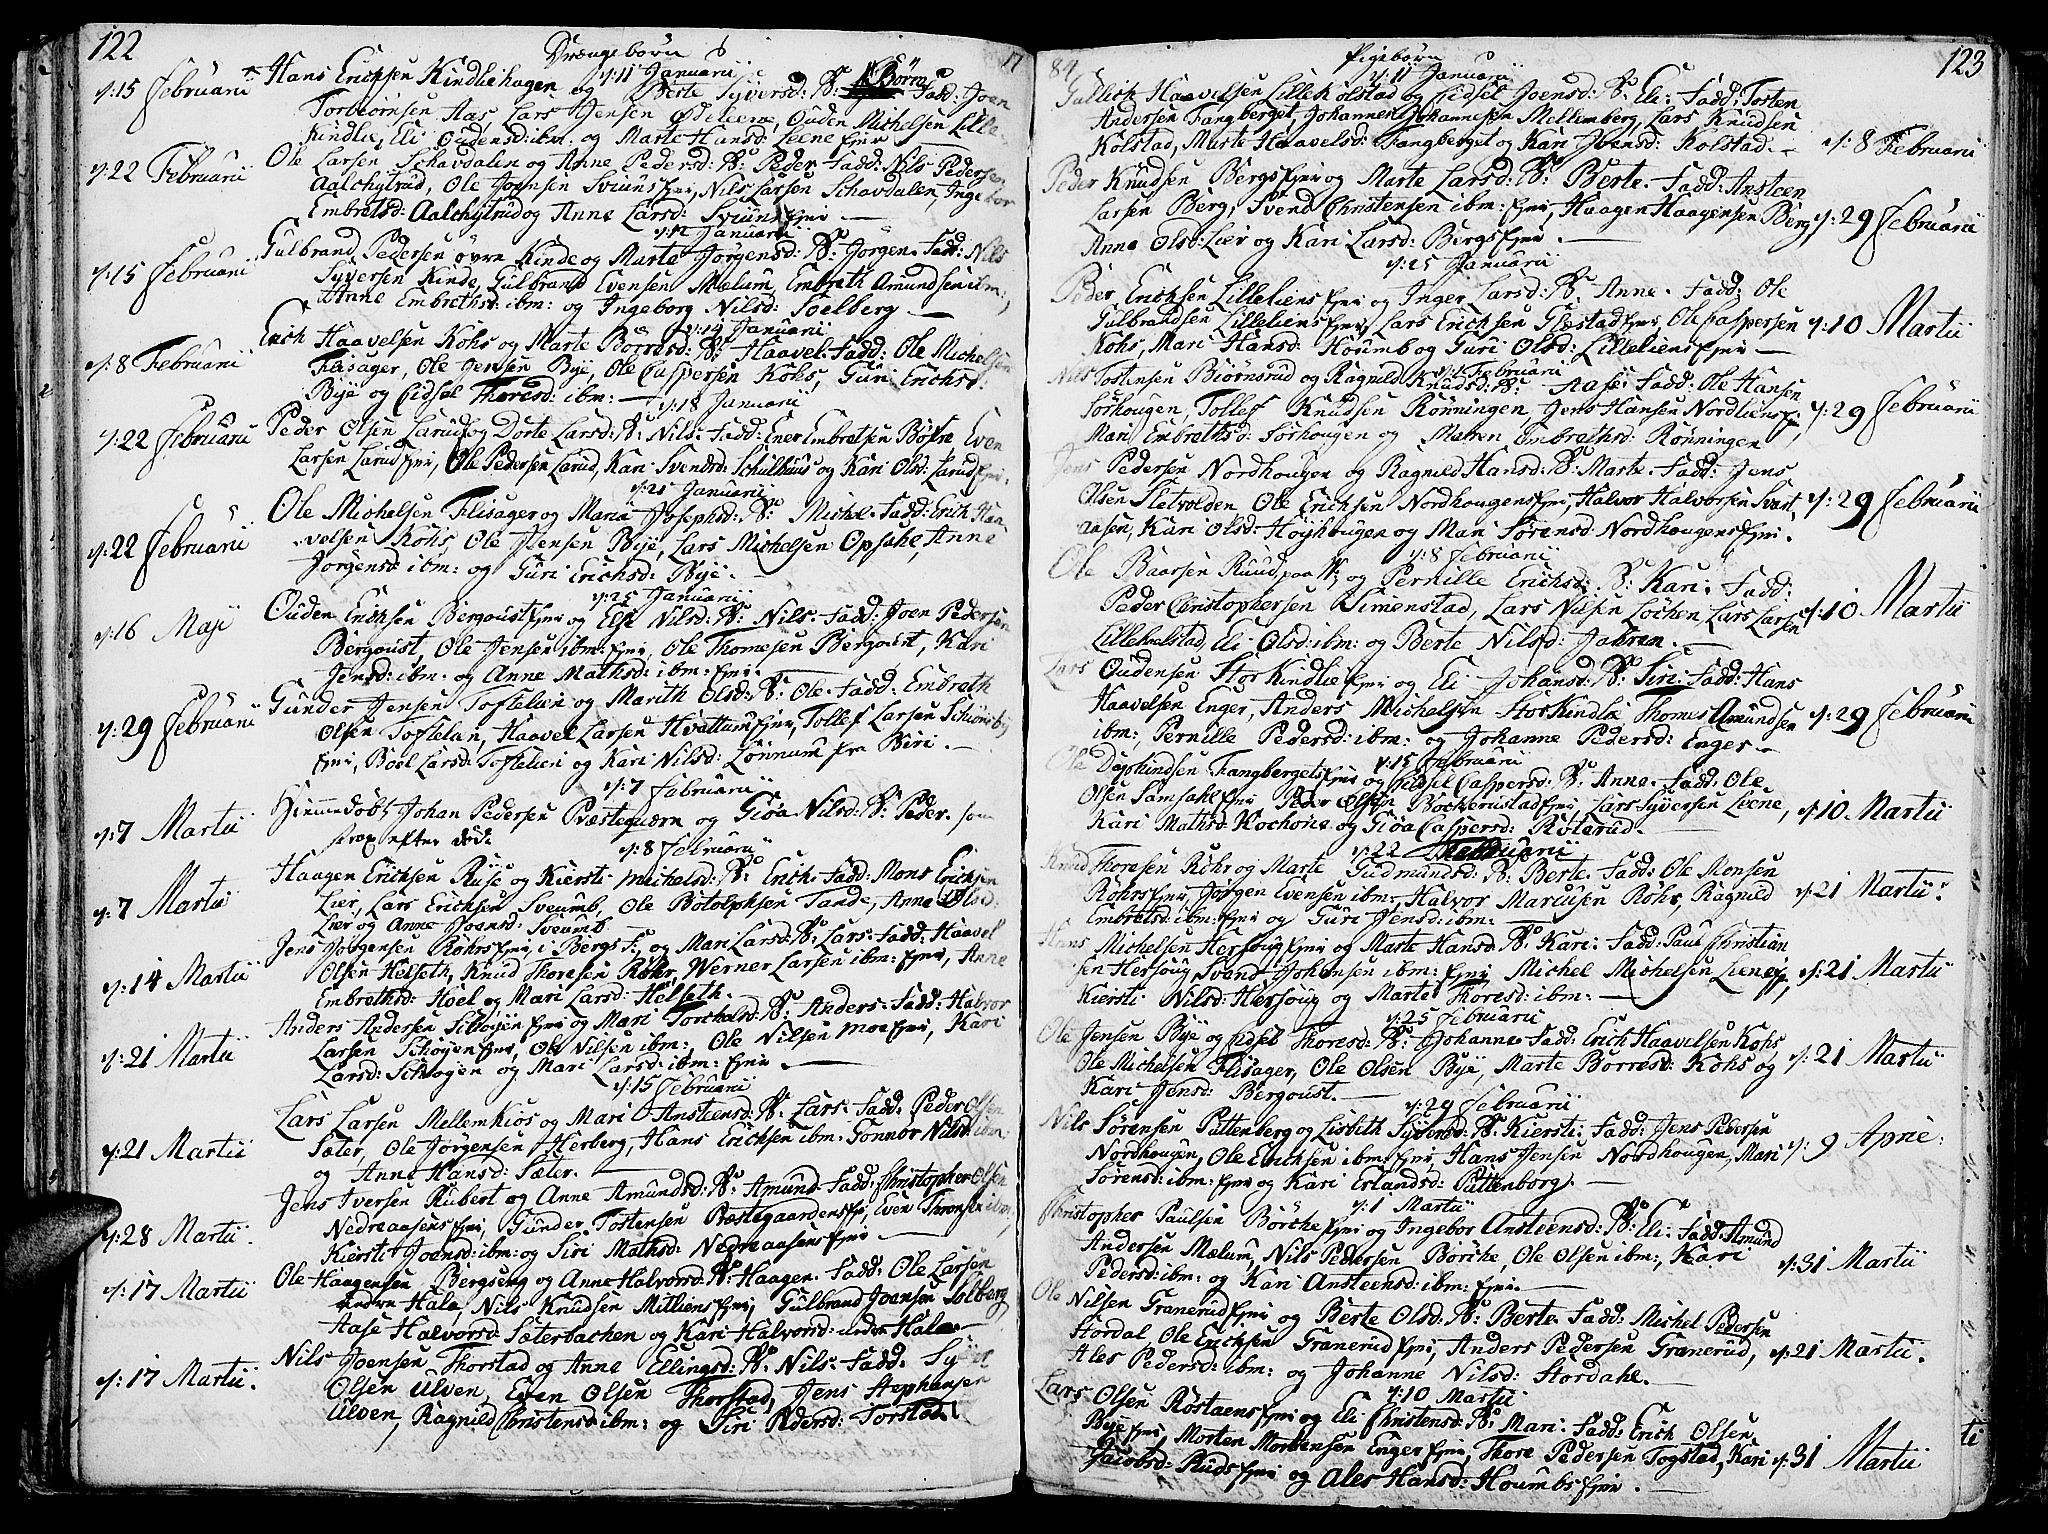 122
Drængebørn
17
d: 11 Januarii
d: 15 Februarii
Hans Erichsen Kindliehagen og Berte Syversd: B: Börre Fadd: Joen
Torbiörnsen Aas Lars Hensen Ødeleene, Ouden Michelsen Lille
Kindlie, Eli Oudensd: ibm: og Marte Hansd: Leene Ejer
d: 22 Februarii
Ole Larsen Schavdalen og Anne Pedersd: B: Peder Fadd: Nils Pedersen
Aalchytrud, Ole Joensen Sviuns Ejer, Nils Larsen Schavdalen, Ingebor
Embretsd: Aalchytrud og Anne Larsd: Sviuns Ejer
d: 12 Januarii
d: 15 Februarii
Gulbrand Pedersen övre Kinde og Marte Jörgensd: B: Jörgen. Fadd: Nils
Syversen Kinde, Gulbrand Evensen Mælum, Embreth Amundsen ibm:,
Anne Embrethsd: ibm: og Ingeborg Nilsd: Soelberg
d: 14 Januarii
d: 8 Februarii
Erich Haavelsen Kohs og Marte Börresd: B: Haavel. Fadd: Ole Michelsen
Flisager, Ole Jensen Bye, Ole Caspersen Kohs, Guri Erichsd:
Bye og Eidsel Thoresd: ibm:
d: 18 Januarii
d: 22 Februarii
Peder Olsen Larud og Dorte Larsd: B: Nils. Fadd: Ener Embretsen Böfre Even
Larsen Larud Ejer, Ole Pedersen Larud, Kari Svendsd: Schulhuus og Kari Olsd: Larud Ejer.
d: 21 Januarii
d: 22 Februarii
Ole Michelsen Flisager og Maria Josephsd: B: Michel. Fadd: Erich Haa-
velsen Kohs, Ole Jensen Bye, Lars Michelsen Opsahl, Anne
Jörgensd: ibm: og Guri Erichsd: Bye.
d: 25 Januarii
d: 16 Maji
Ouden Erichsen Bergqvist Ejer og Else Nilsd: B: Nils. Fadd: Joen Pedersen
Bergqvist, Ole Jensen ibm: Ejer, Ole Thomesen Bergqvist, Kari
Jensd: ibm: og Anne Mathsd: ibm: Ejer.
d: 29 Februarii
Gunder Jensen Toftelien og Marith Olsd: B: Ole. Fadd: Embreth
Olsen Toftelien, Haavel Larsen Hvattum Ejer, Tollef Larsen Schiönsby
Ejer, Boel Larsd: Toftelien og Kari Nilsd: Lönnum fra Biri.
d: 7 Februarii
d: 7 Martii
Hiemmedöbt Johan Pedersen Præsteqværn og Giöa Nilsd: B: Peder. som
strax efter döde
d: 8 Februarii
d: 7 Martii
Haagen Erichsen Ruse og Kiersti Michelsd: B: Erich. Fadd: Mons Erichsen
Lier, Lars Erichsen Sveumb, Ole Botolphsen Tande, Anne Olsd:
Lier og Anne Joensd: Sveumb
d: 14 Martii
Jens Jörgensen Röhrs Ejer i Bergs S: og Mari Larsd: B: Lars. Fadd: Haavel
Olsen Helseth, Knud Thoresen Röhr, Werner Larsen ibm: Ejer, Anne
Embrethsd: Hoel og Mari Larsd: Helseth.
d: 21 Martii
Anders Andersen Schöyen Ejer og Mari Torchelsd: B: Anders. Fadd: Halvor
Larsen Schöyen Ejer, Ole Nilsen ibm:, Ole Nilsen Moe Ejer, Kari
Larsd: Schöyen og Mari Larsd: ibm: Ejer
d: 15 Februarii
d: 21 Martii
Lars Larsen Mellemkiös og Mari Ansteensd: B: Lars. Fadd: Peder Olsen
Sæter, Ole Jörgensen Herberg, Hans Erichsen ibm: Gonnor Nilsd: ibm:
og Anne Hansd: Sæter.
d: 28 Martii
Jens Iversen Rubert og Anne Amundsd: B: Amund. Fadd: Christopher Olsen
Nedreaasens Ejer, Gunder Tostensen Præstegaardens Ejer, Even
Kiersti Joensd: ibm: og Siri Mathsd: Nedreaasens Ejer
d: 17 Martii
Ole Haagensen Bergseng og Anne Halvorsd: B: Haagen. Fadd: Ole Larsen
undre Hala, Nils Knudsen Mitliens Ejer, Gulbrand Joensen Solberg,
Aase Halvorsd: Sæterbachen og Kari Halvorsd: under Hala.
d: 17 Martii.
Nils Joensen Thorstad og Anne Ellingsd: B: Nils. Fadd: Syver
Olsen Ulven, Even Olsen Thorstad, Jens Stephensen
Ulven, Ragnild Christensd: ibm: og Siri Pedersd: Torstad
84
Pigebörn
123
d: 11 Januarii
Gullich Haavelsen Lillekolstad og Eidsel Joensd: B: Eli. Fadd: Tosten
Andersen Fangberget, Johannes Johannesen Mellemberg, Lars Knudsen
Kolstad, Marte Haavelsd: Fangberget og Kari Joensd: Kolstad.
d: 8 Februarii
Peder Knudsen Bergs Ejer og Marte Larsd: B: Berte. Fadd: Ansteen
Larsen Berg, Svend Christensen ibm: Ejer, Haagen Haagensen Berg,
Anne Olsd: Lier og Kari Larsd: Bergs Ejer.
d: 29 Februarii
d: 25 Januarii
Peder Erichsen Lilleliens Ejer og Inger Larsd: B: Anne. Fadd: Ole
Gulbrandsen Lilleliens Ejer, Lars Erichsen Glæstad Ejer, Ole Caspersen
Kohs, Mari Hansd: Houmb og Guri Olsd: Lilleliens Ejer
d: 10 Martii
d: 1 Februarii
Nils Tostensen Biörnsrud og Ragnild Knudsd: B: Aase. Fadd: Ole Hansen
Sörhougen, Tollef Knudsen Rönningen, Jens Hansen Nordliens E:,
Mari Embrethsd: Sörhougen og Maren Embrethsd: Rönningen
d: 29 Februarii
Jens Pedersen Nordhougen og Ragnild Hansd: B: Marte. Fadd: Jens
Olsen Sletvolden, Ole Erichsen Nordhougens Ejer, Halvor Halvorsen Svart
aasen, Kari Olsd: Höyhougen og Mari Sörensd: Nordhougens Ejer.
d: 29 Februarii
d: 8 Februarii
Ole Baarsen Ruud paa N: og Pernille Erichsd: B: Kari. Fadd:
Peder Christophersen Simenstad, Lars Nilsen Lochen, Lars Larsen
Lillehalstad, Eli Olsd: ibm: og Berte Nilsd: Jahren.
d: 10 Martii
Lars Oudensen Storkindlie Ejer og Eli Johansd: B: Siri. Fadd: Hans
Haavelsen Enger, Anders Michelsen Storkindli Thomes Amundsen
ibm:, Pernille Pedersd: ibm: og Johanne Pedersd: Enger
d: 29 Februarii
d: 15 Februarii
Ole Daphindsen Fangbergets Ejer og Eidsel Caspersd: B: Anne. Fadd: Ole
Olsen Samsahl Ejer, Peder Olsen Bockerustad Ejer, Lars Syversen Leene,
Kari Mathsd: Kochorie og Giöa Caspersd: Röterud
d: 10 Martii
d: 22 Februarii
Knud Thoresen Röhr og Marte Gudmundsd: B: Berte. Fadd: Ole Monsen
Röhrs Ejer, Jörgen Evensen ibm:, Halvor Marcusen Röhr, Ragnild
Embretsd: ibm: Ejer og Guri Jensd: ibm:
d: 21 Martii
Hans Michelsen Hersoug Ejer og Marte Hansd: B: Kari. Fadd: Paul Christian
sen Hersoug, Svend Johansen ibm: Ejer, Michel Michelsen Liene Ejer,
Kiersti Nilsd: Hersoug og Marte Thoresd: ibm:
d: 21 Martii
d: 25 Februarii
Ole Jensen Bye og Eidsel Thoresd: B: Johanne. Fadd: Erich Haavelsen Kohs
Ole Michelsen Flisager, Ole Olsen Bye, Marte Börresd: Kohs og
Kari Jensd: Bergqvist.
d: 21 Martii
d: 29 Februarii
Nils Sörensen Puttenberg og Lisbeth Syversd: B: Kiersti. Fadd: Jens Pedersen
Nordhougen, Ole Erichsen ibm: Ejer, Hans Jensen Nordhougen, Mari
Sörensd: ibm: Ejer og Kari Erlandsd: Puttenborg.
d: 9 April:
d: 1 Martii
Christopher Paulsen Börche Ejer og Ingebor Ansteensd: B: Eli. Fadd: Amund
Andersen Mælum, Nils Pedersen Börche, Ole Olsen ibm:, Kari
Pedersd: ibm: og Kari Ansteensd: ibm: Ejer.
d: 31 Martii
Ole Nilsen Granerud Ejer og Berte Olsd: B: Berte. Fadd: Michel Pedersen
Stordal, Ole Erichsen Granerud Ejer, Anders Pedersen Granerud,
Ales Pedersd: ibm: og Johanne Nilsd: Stordahl.
d: 21 Martii.
d: 10 Martii
Lars Olsen Röstaens Ejer og Eli Christensd: B: Mari. Fadd: Erich Olsen
Bye Ejer, Morten Mortensen Enger Ejer, Thore Pedersen Togstad, Kari
Jacobsd: Ruds Ejer og Ales Hansd: Houmbs Ejer.
d: 31 Martii